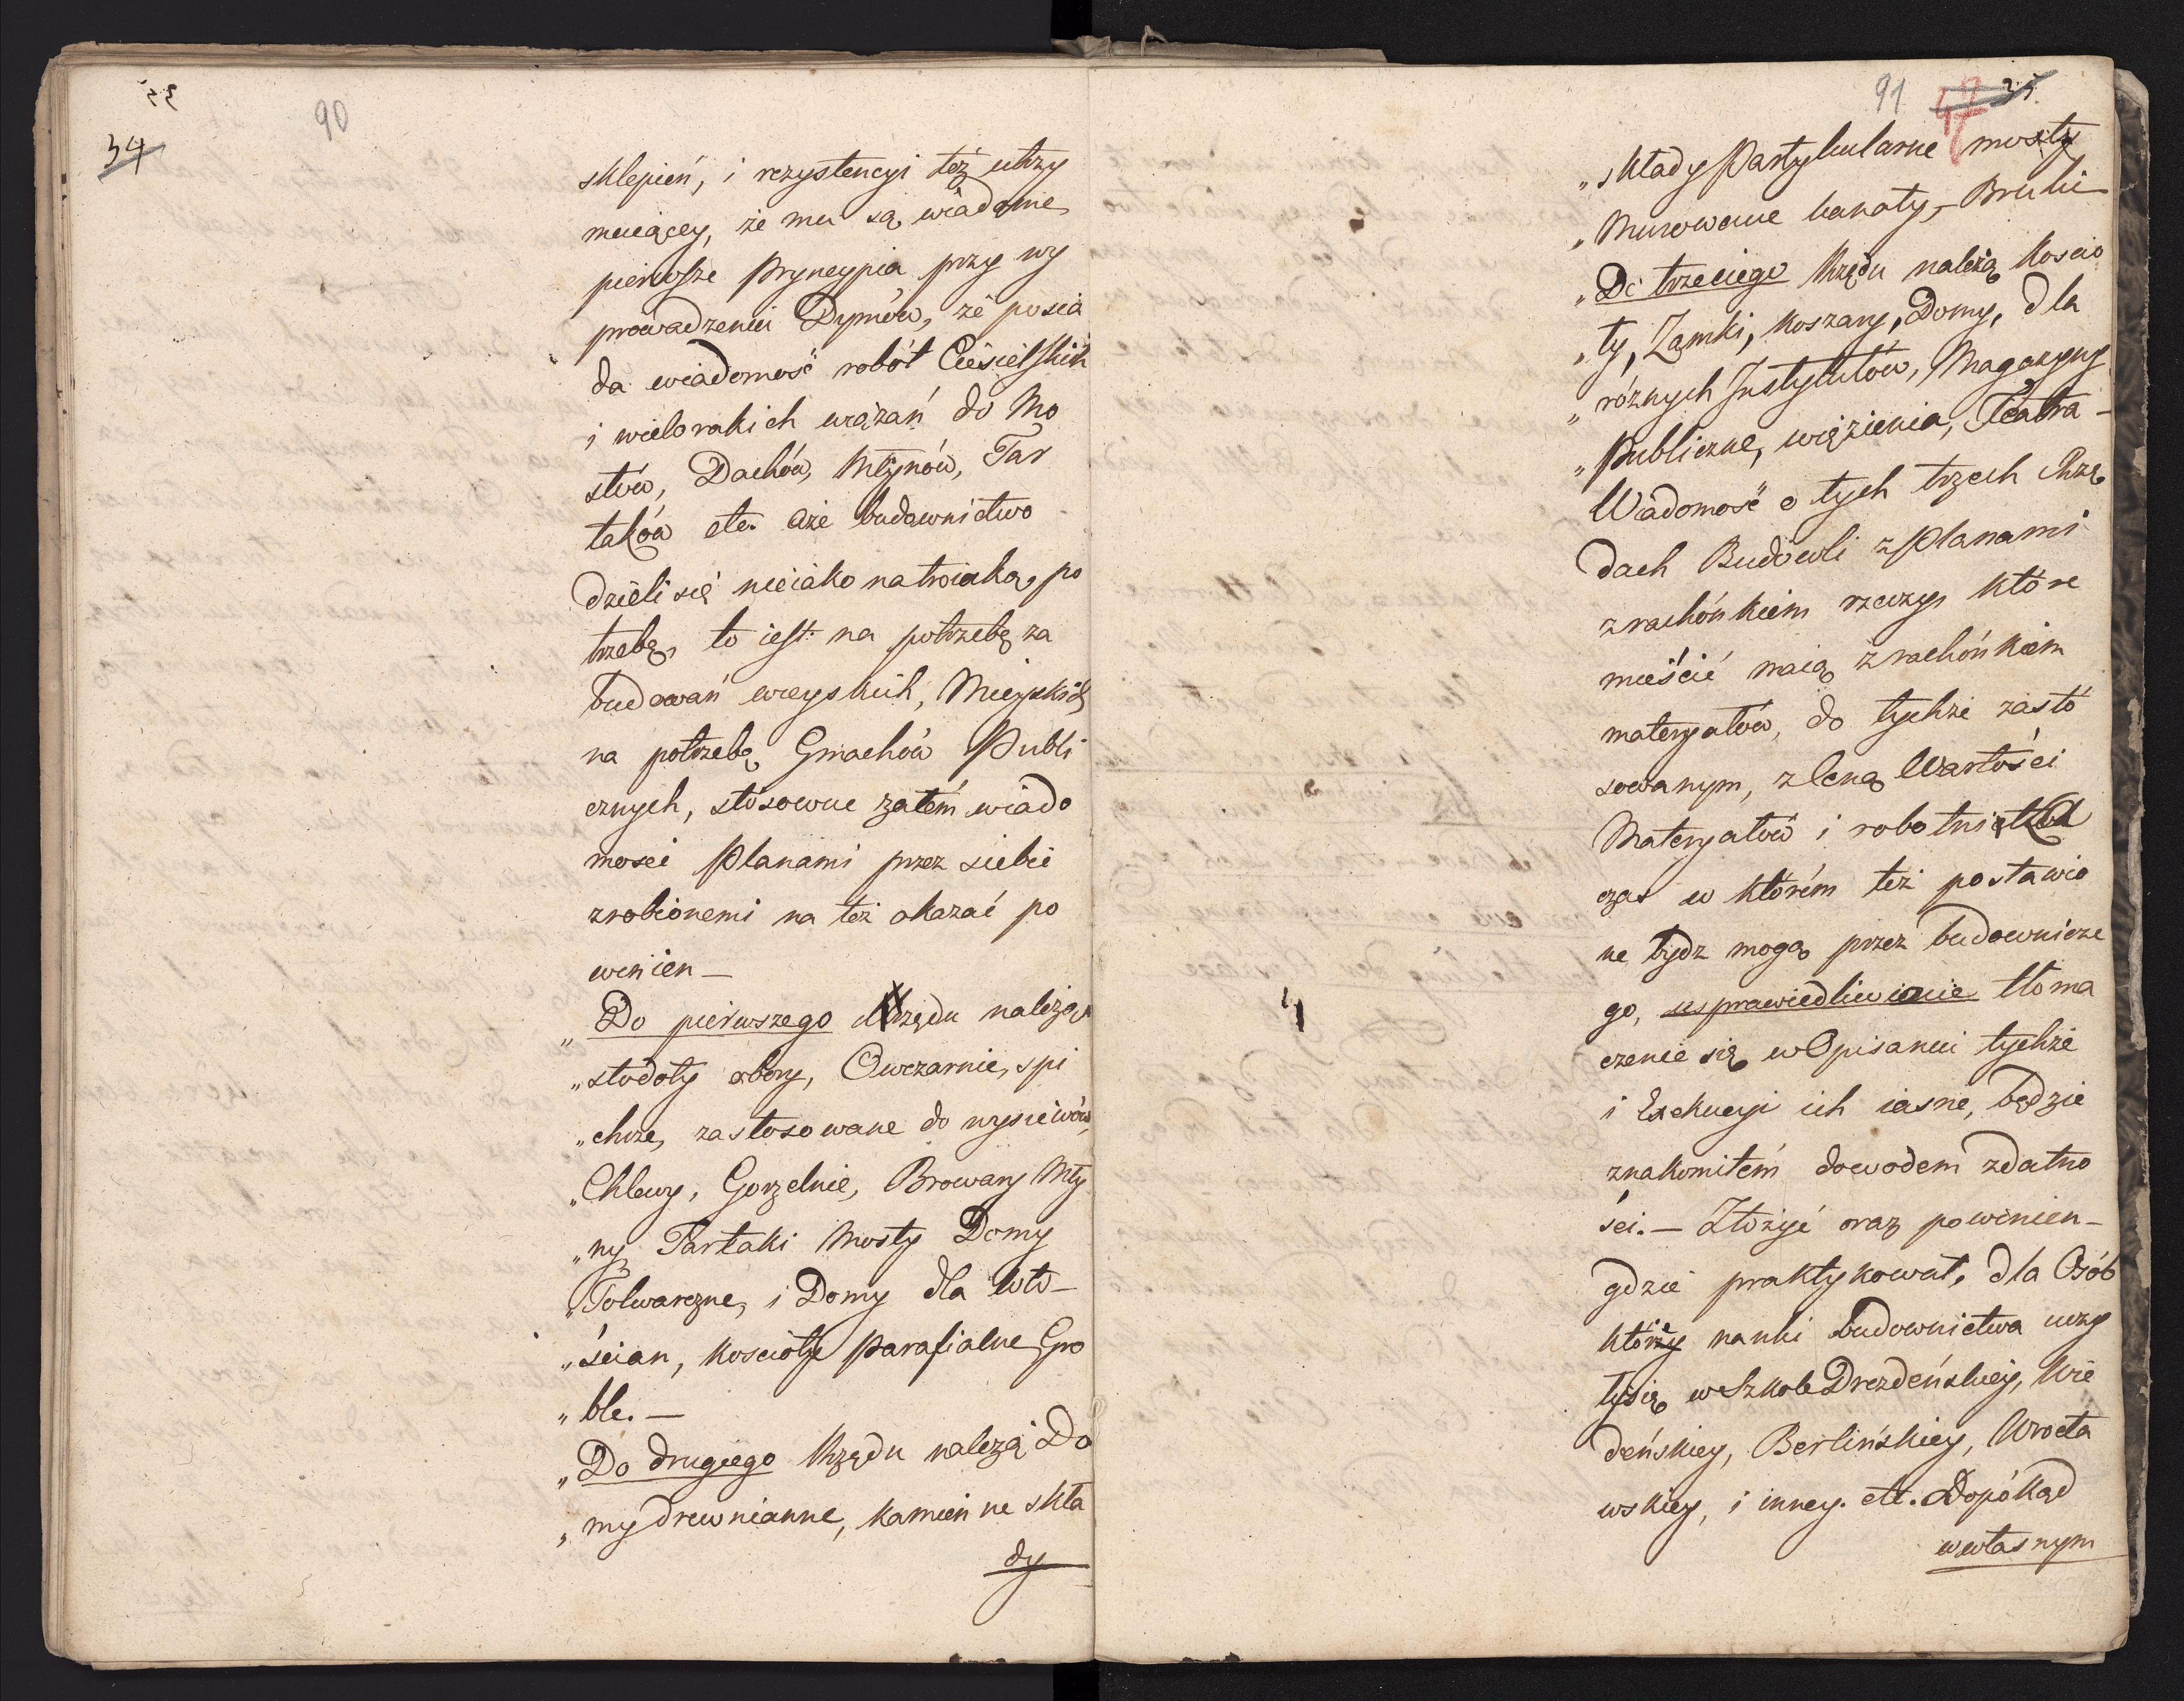 90
34
sklepień, i rezystencyi też utrzy
muiącey, że mu są wiadome
pierwsze pryncypia przy wy
prowadzeniu Dymów, że posia
da wiadomość robót Ciesielskich
i wielorakich wiązań do Mo
stów, Dachów, Młynów, Tar
taków etc. aże budownictwo
dzieli się nieiako na troiaką po
trzebę, to iest: na potrzebę za
budowań wieyskich, Mieyskich
na potrzebę Gmachów Publi
cznych, stósowne zatém wiado
mosci Planami przez siebie
zrobionemi na też okazać po
winien —
„Do pierwszego Rzędu należą
„stodoły obory, Owczarnie, spi
„chrze, zastosowane do wysiewów,
„Chlewy, Gorzelnie, Browary Mły
„ny Tartaki Mosty Domy
„Folwarczne, i Domy dla Wło—
„ścian, kościoły Parafialne Gro
„ble. —
„Do drugiego Rzędu należą Do
„my drewnianne, kamienne skła
dy
91
„składy Partykularne mosty
„Murowane kanały, Bruki
„Do trzeciego Rzędu należą Koscio
„ły, Zamki, Koszary, Domy, dla
„różnych Instytutów, Magazyny
„Publiczne, więzienia, Teatra —
Wiadomość o tych trzech Rzę
dach Budowli z Planami
z rachónkiem rzeczy, które
mieścić maią z rachónkiem
materyałów, do tychże zastó
sowanym, z Ceną Wartości
Materyałów i robotnika
czas w którém też postawio
ne bydz mogą przez budownicze
go, usprawiedliwienie tłoma
czenie się w Opisaniu tychże
i Exekucyi ich iasne, będzie
znakomitém dowodem zdatno
ści. — Złożyć oraz powinien —
gdzie praktykował, dla Osób
którzy nauki budownictwa uczy
li się w Szkole Drezdeńskiey, Wie
deńskiey, Berlińskiey, Wrocła
wskiey, i inney. etc. Dopókąd
w własnym